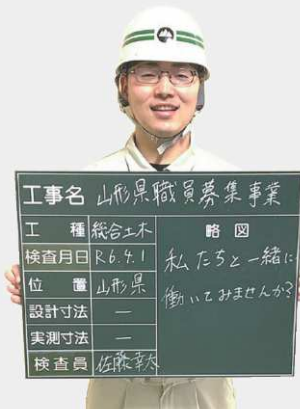 工事名 山形県職員募集事業
工種 総合土木
略図
検査月日 R6.4.1
位置 山形県
設計寸法 ―
実測寸法 ―
検査員 佐藤幸太
私たちと一緒に
働いてみませんか?